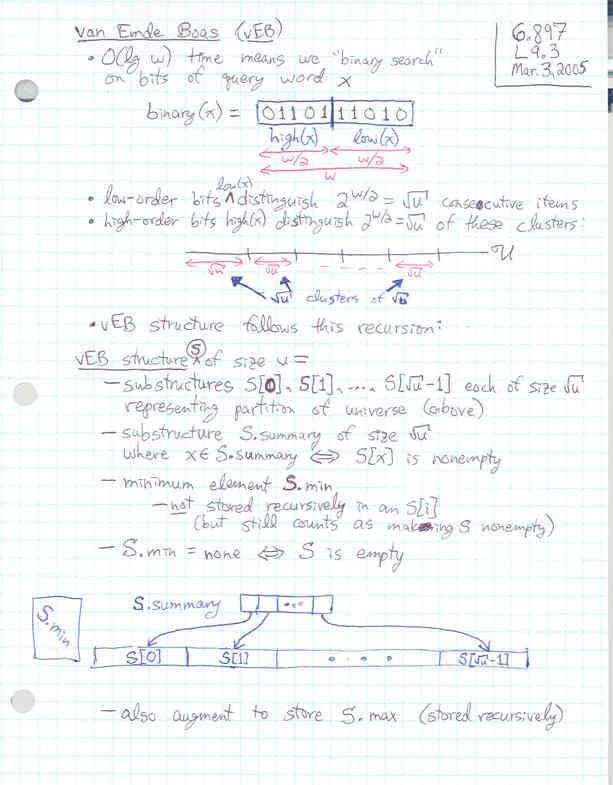 van Emde Boas (vEB)
6.897
L 9.3
Mar. 3, 2005
• O(lg w) time means we "binary search"
on bits of query word x
binary(x) = 01101 11010
high(x) low(x)
w/2 w/2
w
• low-order bits low(x) distinguish 2^{w/2} = √u consecutive items
• high-order bits high(x) distinguish 2^{w/2} = √u of these clusters:
√u √u - - - - √u U
√u clusters of √u
• vEB structure follows this recursion:
vEB structure S of size u =
— substructures S[0], S[1], ..., S[√u-1] each of size √u
representing partition of universe (above)
— substructure S.summary of size √u
where x ∈ S.summary ⇔ S[x] is nonempty
— minimum element S.min
— not stored recursively in an S[i]
(but still counts as making S nonempty)
— S.min = none ⇔ S is empty
S.summary ...
S.min
S[0] S[1] . . . . S[√u-1]
— also augment to store S.max (stored recursively)